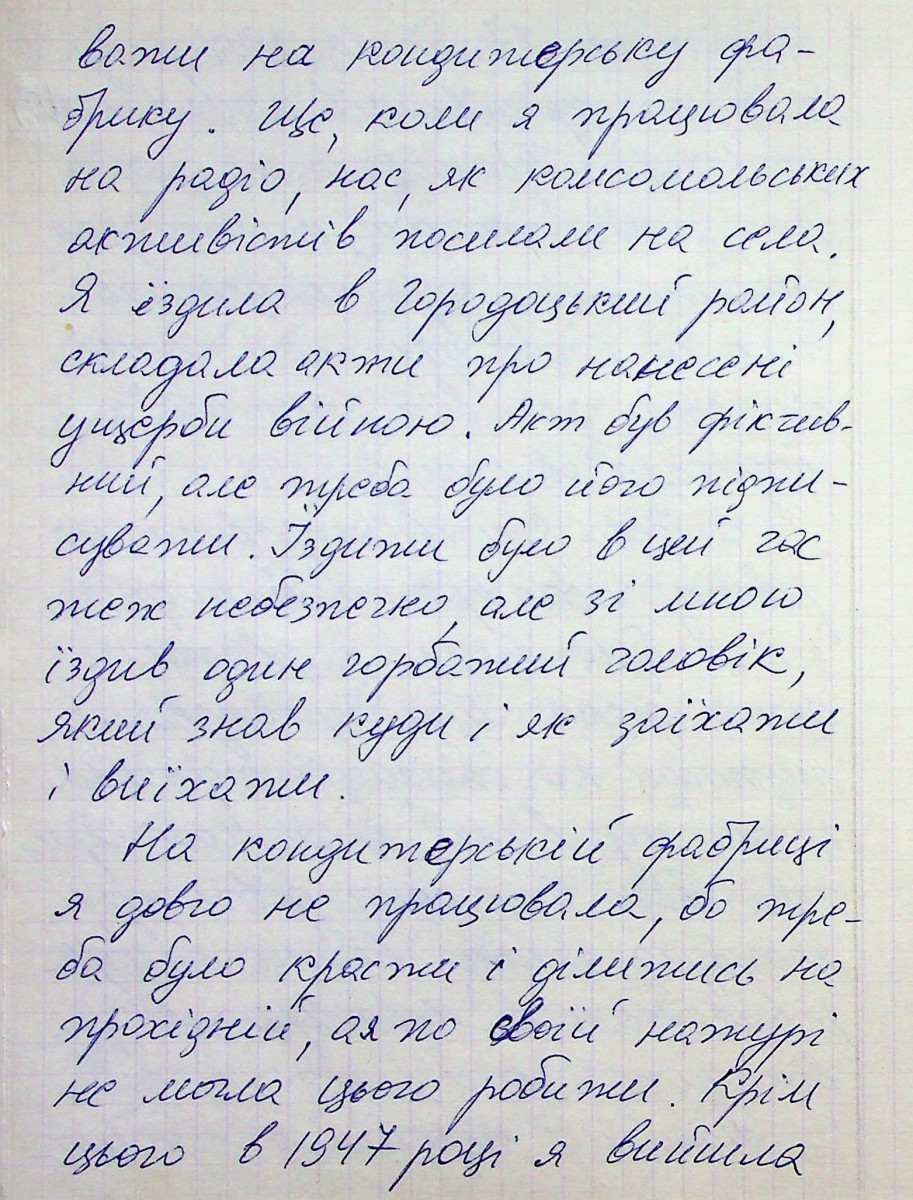 вати на кондитерську фа-
брику. Ще, коли я працювала
на радіо, нас, як комсомольських
активістів посилали на села.
Я їздила в Городоцький район,
складала акти про нанесені
ущерби війною. Акт був фіктив-
ний, але треба було його підпи-
сувати. Їздити було в цей час
теж небезпечно, але зі мною
їздив один горбатий чоловік,
який знав куди і як заїхати
і виїхати.
На кондитерській фабриці
я довго не працювала, бо тре-
ба було красти і ділитись на
прохідній, а я по своїй натурі
не могла цього робити. Крім
цього в 1947 році я вийшла